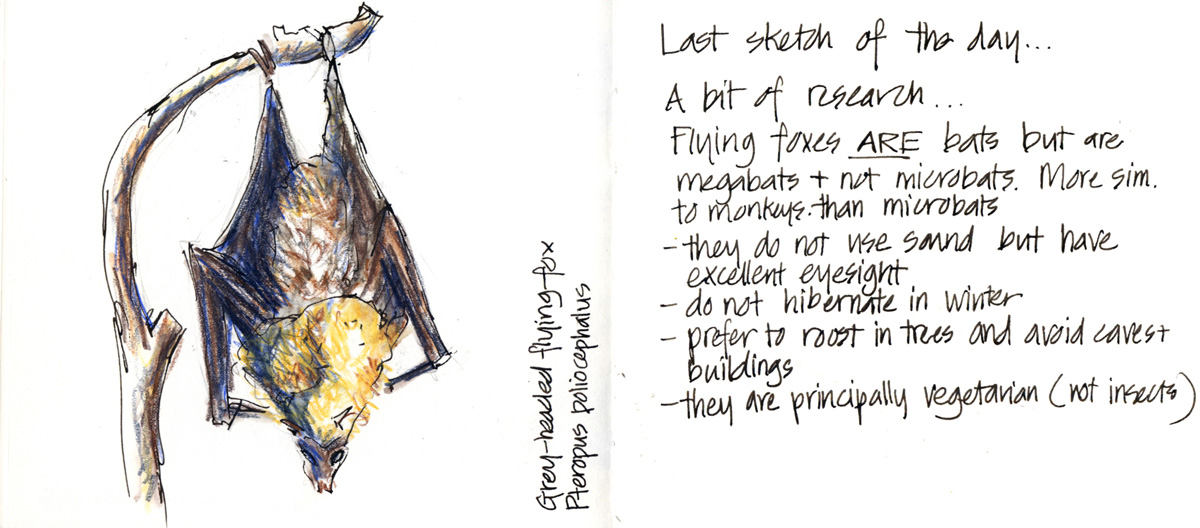 Grey-headed flying-fox
Pteropus poliocephalus
Last sketch of the day...
A bit of research...
Flying foxes ARE bats but are
megabats + not microbats. More sim.
to monkeys than microbats
- they do not use sound but have
excellent eyesight
- do not hibernate in winter
- prefer to roost in trees and avoid caves +
buildings
- they are principally vegetarian (not insects)